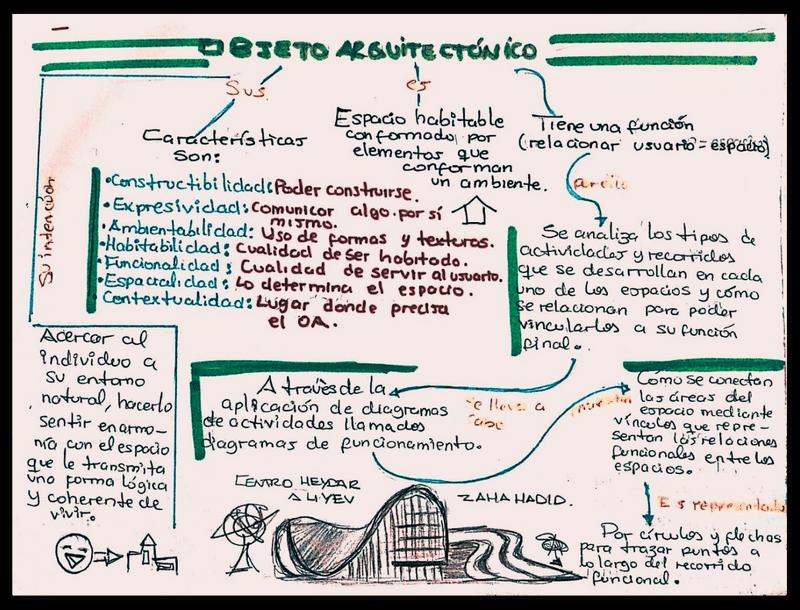 OBJETO ARQUITECTÓNICO
Sus
es
Características
son:
Espacio habitable
conformado por
elementos que
conforman
un ambiente.
Tiene una función
(relacionar usuario = espacio)
para ello
Su intención
• Constructibilidad: Poder construirse.
• Expresividad: Comunicar algo por sí
mismo.
• Ambientabilidad: Uso de formas y texturas.
• Habitabilidad: Cualidad de ser habitado.
• Funcionalidad: Cualidad de servir al usuario.
• Espacialidad: Lo determina el espacio.
Contextualidad: Lugar donde precisa
el OA.
Se analiza los tipos de
actividades y recorridos
que se desarrollan en cada
uno de los espacios y cómo
se relacionan para poder
vincularlos a su función
final.
Acercar al
individuo a
su entorno
natural, hacerlo
sentir en armo-
nía con el espacio
que le transmita
una forma lógica
y coherente de
vivir.
A través de la
aplicación de diagramas
de actividades llamados
diagramas de funcionamiento.
se lleva a
cabo
muestran
Cómo se conectan
las áreas del
espacio mediante
vínculos que repre-
sentan las relaciones
funcionales entre los
espacios.
Es representado
Por círculos y flechas
para trazar puntos a
lo largo del recorrido
funcional.
CENTRO HEYDAR
ALIYEV
ZAHA HADID.